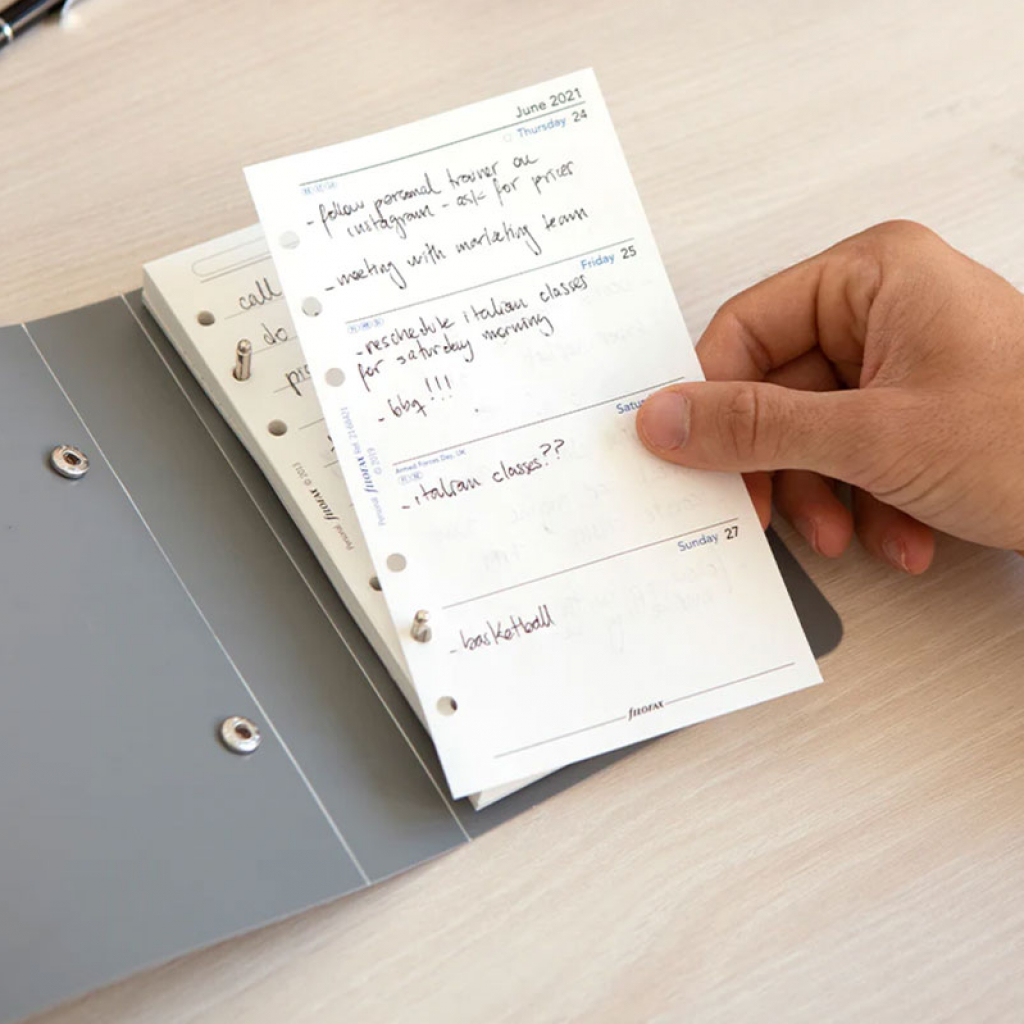 June 2021
Thursday 24
- follow personal trainer on
instagram - ask for prices
- meeting with marketing team
Friday 25
- reschedule italian classes
for saturday morning
- bbq !!!
Satu
Armed Forces Day, UK
- italian classes??
Sunday 27
- basketball
FILOFAX
Personal FILOFAX © 2013
call
do
Personal FILOFAX © 2013